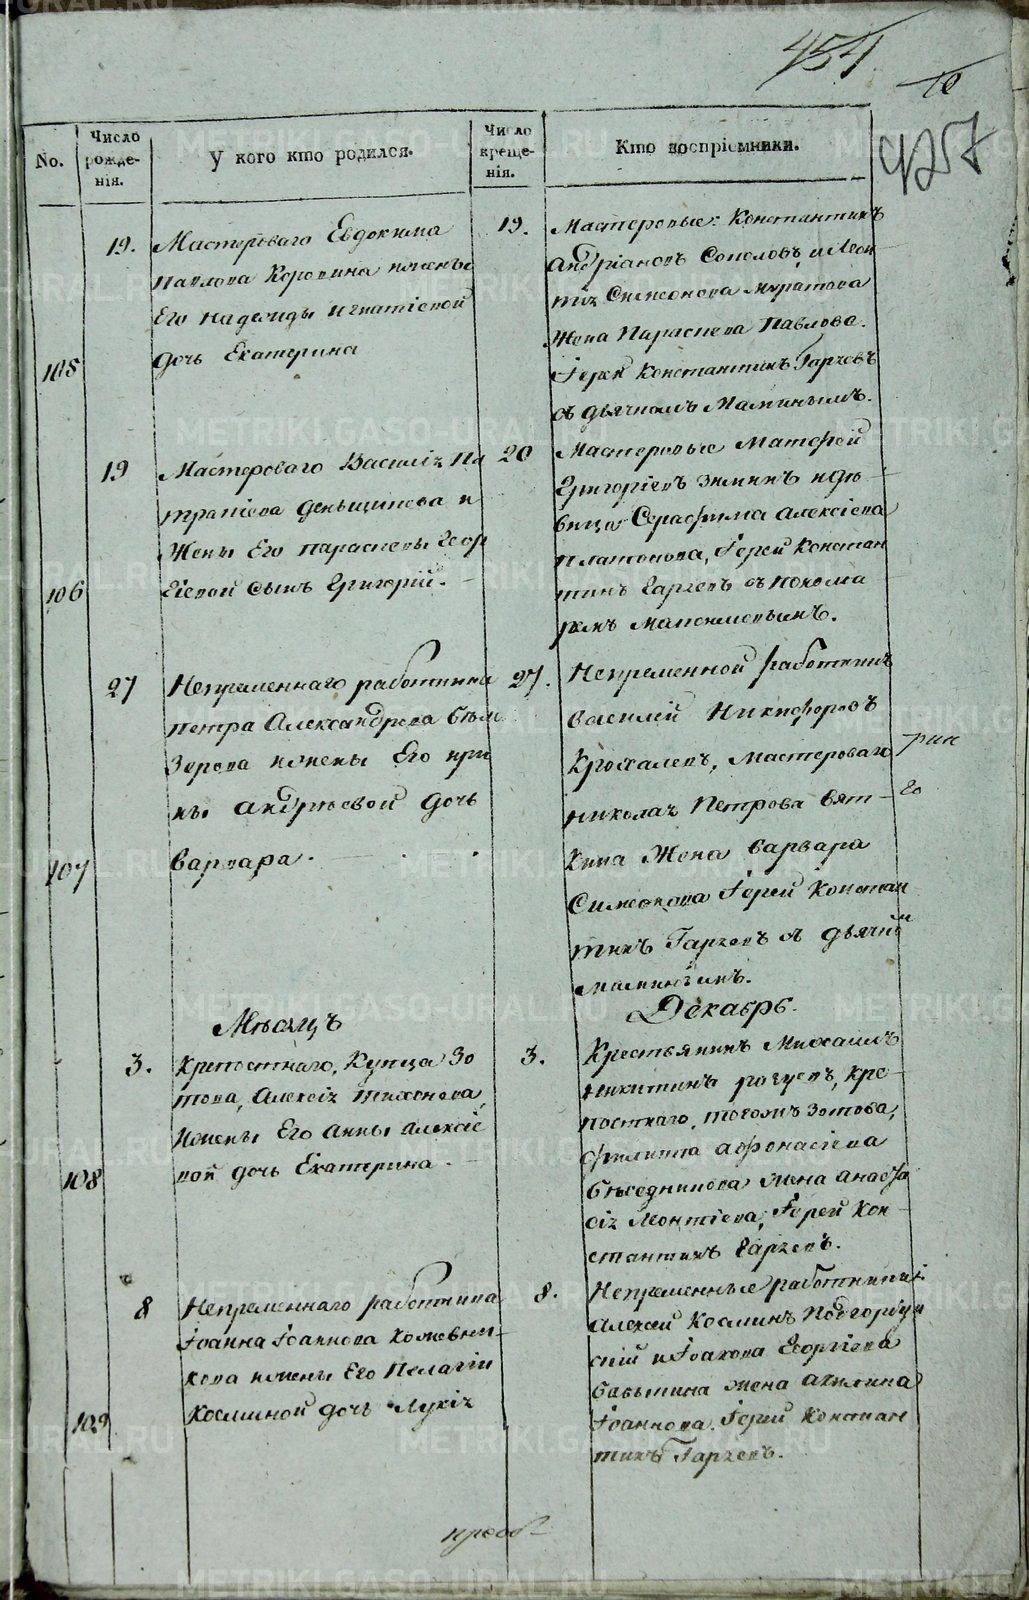 454
10
457
No.
Число рожде-нія.
У кого кто родился.
Число креще-нія.
Кто воспріемники.
105
19.
Мастероваго Евдокима
Павлова Коровина и жены
Его Надежды Игнатіевой
дочь Екатерина
19.
Мастеровые: Константинъ
Андріановъ Соколовъ и Леон
тія Симеонова Муратова
Жена Параскева Павлова.
Іерей Константинъ Гаряевъ
съ дьячкомъ Маминымъ.
106
19
Мастероваго Василія Па
трапіева Деньщикова и
Жены Его Параскевы Геор
гіевой сынъ Григорій.
20
Мастеровые Матфей
Григоріевъ Зиминъ и дѣ-
вица Серафима Алексіева
Платонова, Іерей Констан
тинъ Гаряевъ съ понома
ремъ
107
27
Непременнаго работника
Петра Александрова
зерова и жены Его Ири
ны Андреевой дочь
Варвара.
27.
Непременной работникъ
Василій Никифоровъ
Крохалевъ, Мастероваго
Николая Петрова Вят-
кина Жена Варвара
Симеонова Іерей Констан
тинъ Гаряевъ съ дьячкомъ
Маминымъ.
Мѣсяцъ
Декабрь.
108
3.
Крепостнаго, Купца Зо
това, Алексія Тихонова,
и жены Его Анны Алексіе
вой дочь Екатерина.
3.
Крестьянинъ Михаилъ
Никитинъ, кре-
постнаго, Зотова,
Филиппа Афонасіева
Бѣседникова Жена Анаста
сія Леонтіева, Іерей Кон-
стантинъ Гаряевъ.
109
8
Непременнаго работника
Іоанна Іоаннова Кожевни-
кова и жены Его Пелагіи
Косминой дочь Лукія
8.
Непременные работники:
Алексей Косминъ Подгорбун
скій и Іакова Георгіева
Бабыкина жена Акилина
Іоаннова. Іерей Констан
тинъ Гаряевъ.
METRIKI.GASO-URAL.RU